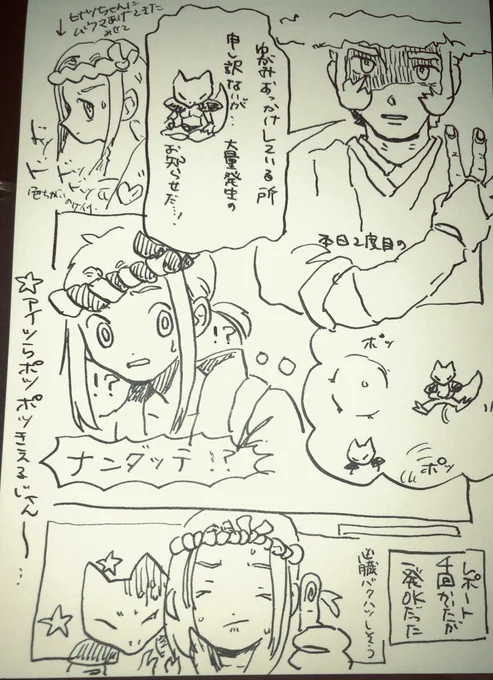 ゆがみおっかけしている所
申し訳ないが…
大量発生の
お知らせだ…!
本日2度目の
↓ヒナツちゃんに
あげてきた
みせて
ドッ
ドッ
ドッ
色ちがいの
!?
!?
ナンダッテ!?
ポッ
ポッ
☆アイツらポッポッきえるじゃん〜…
レポート
千回かいたが
一発OKだった
心臓バクハツしそう